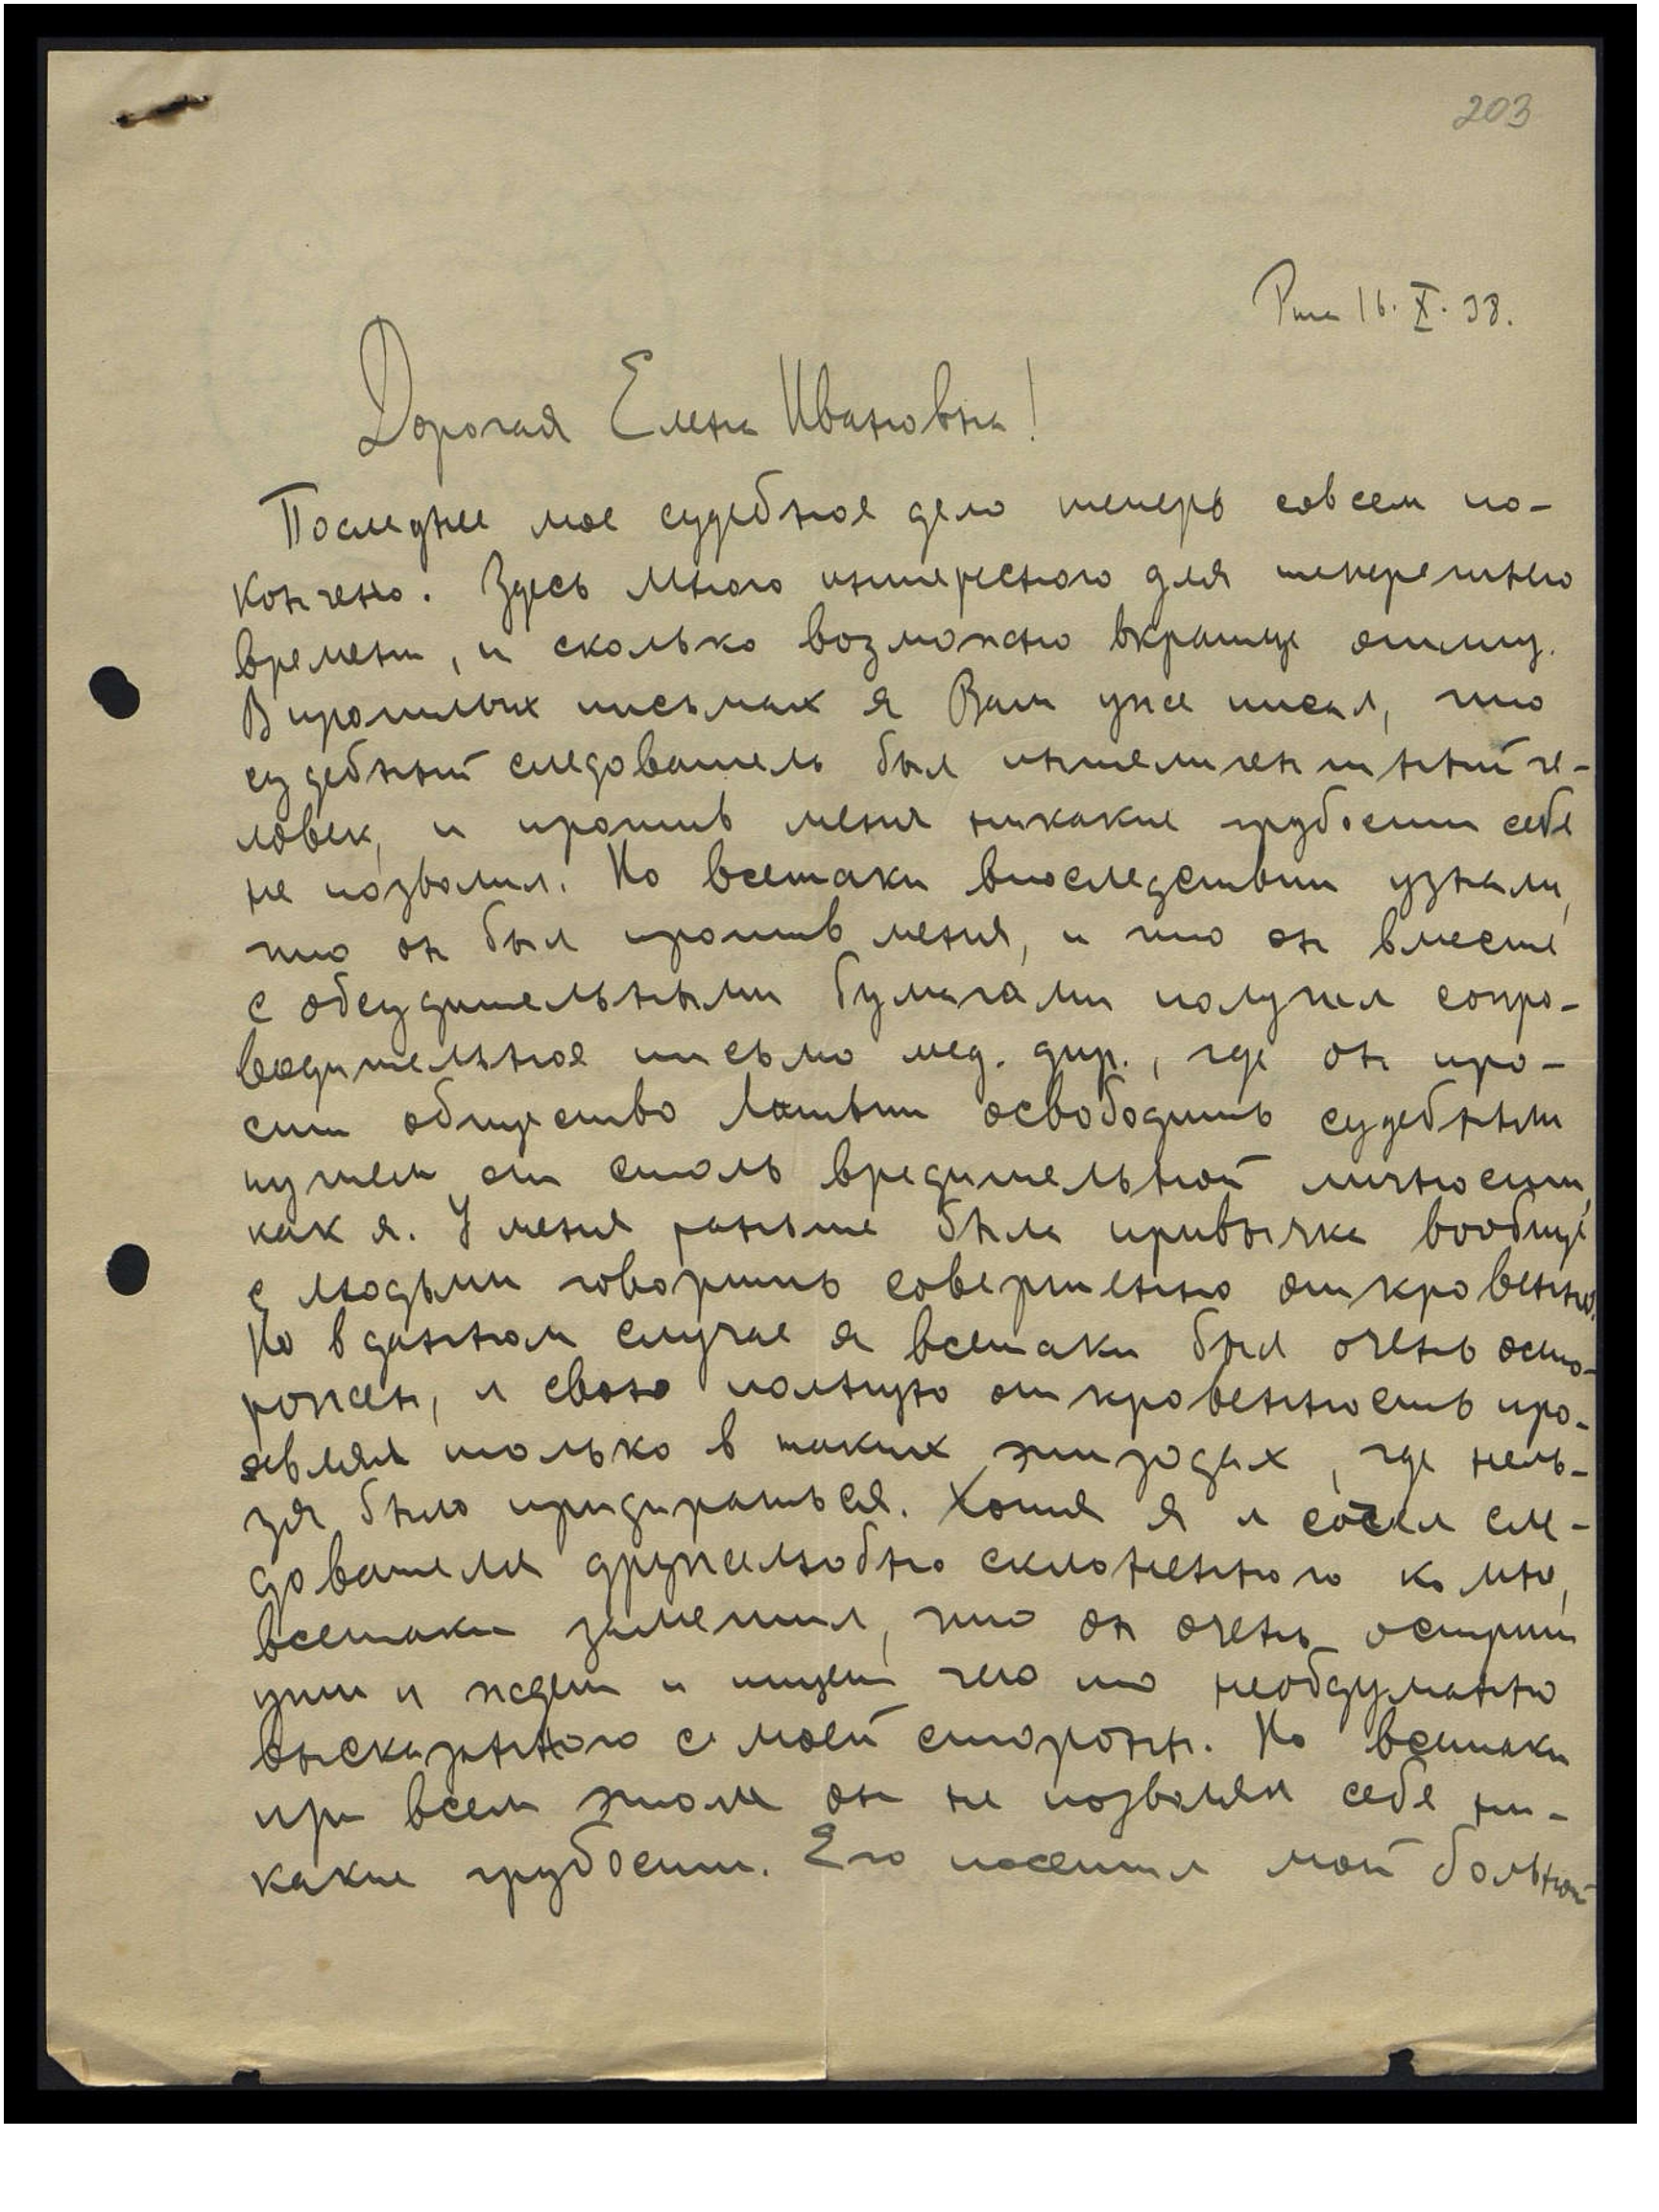 203
Рига 16. X. 38.
Дорогая Елена Ивановна!
Последнее мое судебное дело теперь совсем по-
кончено. Здесь много интересного для теперешнего
времени, и сколько возможно вкратце опишу.
В прошлых письмах я Вам уже писал, что
судебный следователь был интелигентный че-
ловек, и против меня никакие грубости себе
не позволил. Но всетаки впоследствии узнали,
что он был против меня, и что он вместе
с обсудительными бумагами получил сопро-
водительное письмо мед. дир., где он про-
сит общество Латвии освободить судебным
путем от столь вредительной личности,
как я. У меня раньше была привычка вообще
с людьми говорить совершенно откровенно.
Но в данном случае я всетаки был очень осто-
рожен, и свою полную откровенность про-
являл только в таких эпизодах, где нель-
зя было придираться. Хотя я и счел сле-
дователя дружелюбно склоненного ко мне,
всетаки заметил, что он очень острит
уши и ждет и ищет чего то необдуманно
высказанного с моей стороны. Но всетаки
при всем этом он не позволял себе ни-
какие грубости. Его посетил мой больной